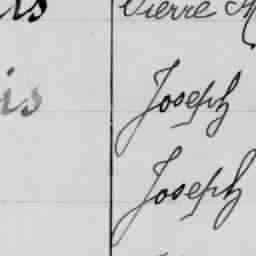 is Pierre M
is Joseph
Joseph